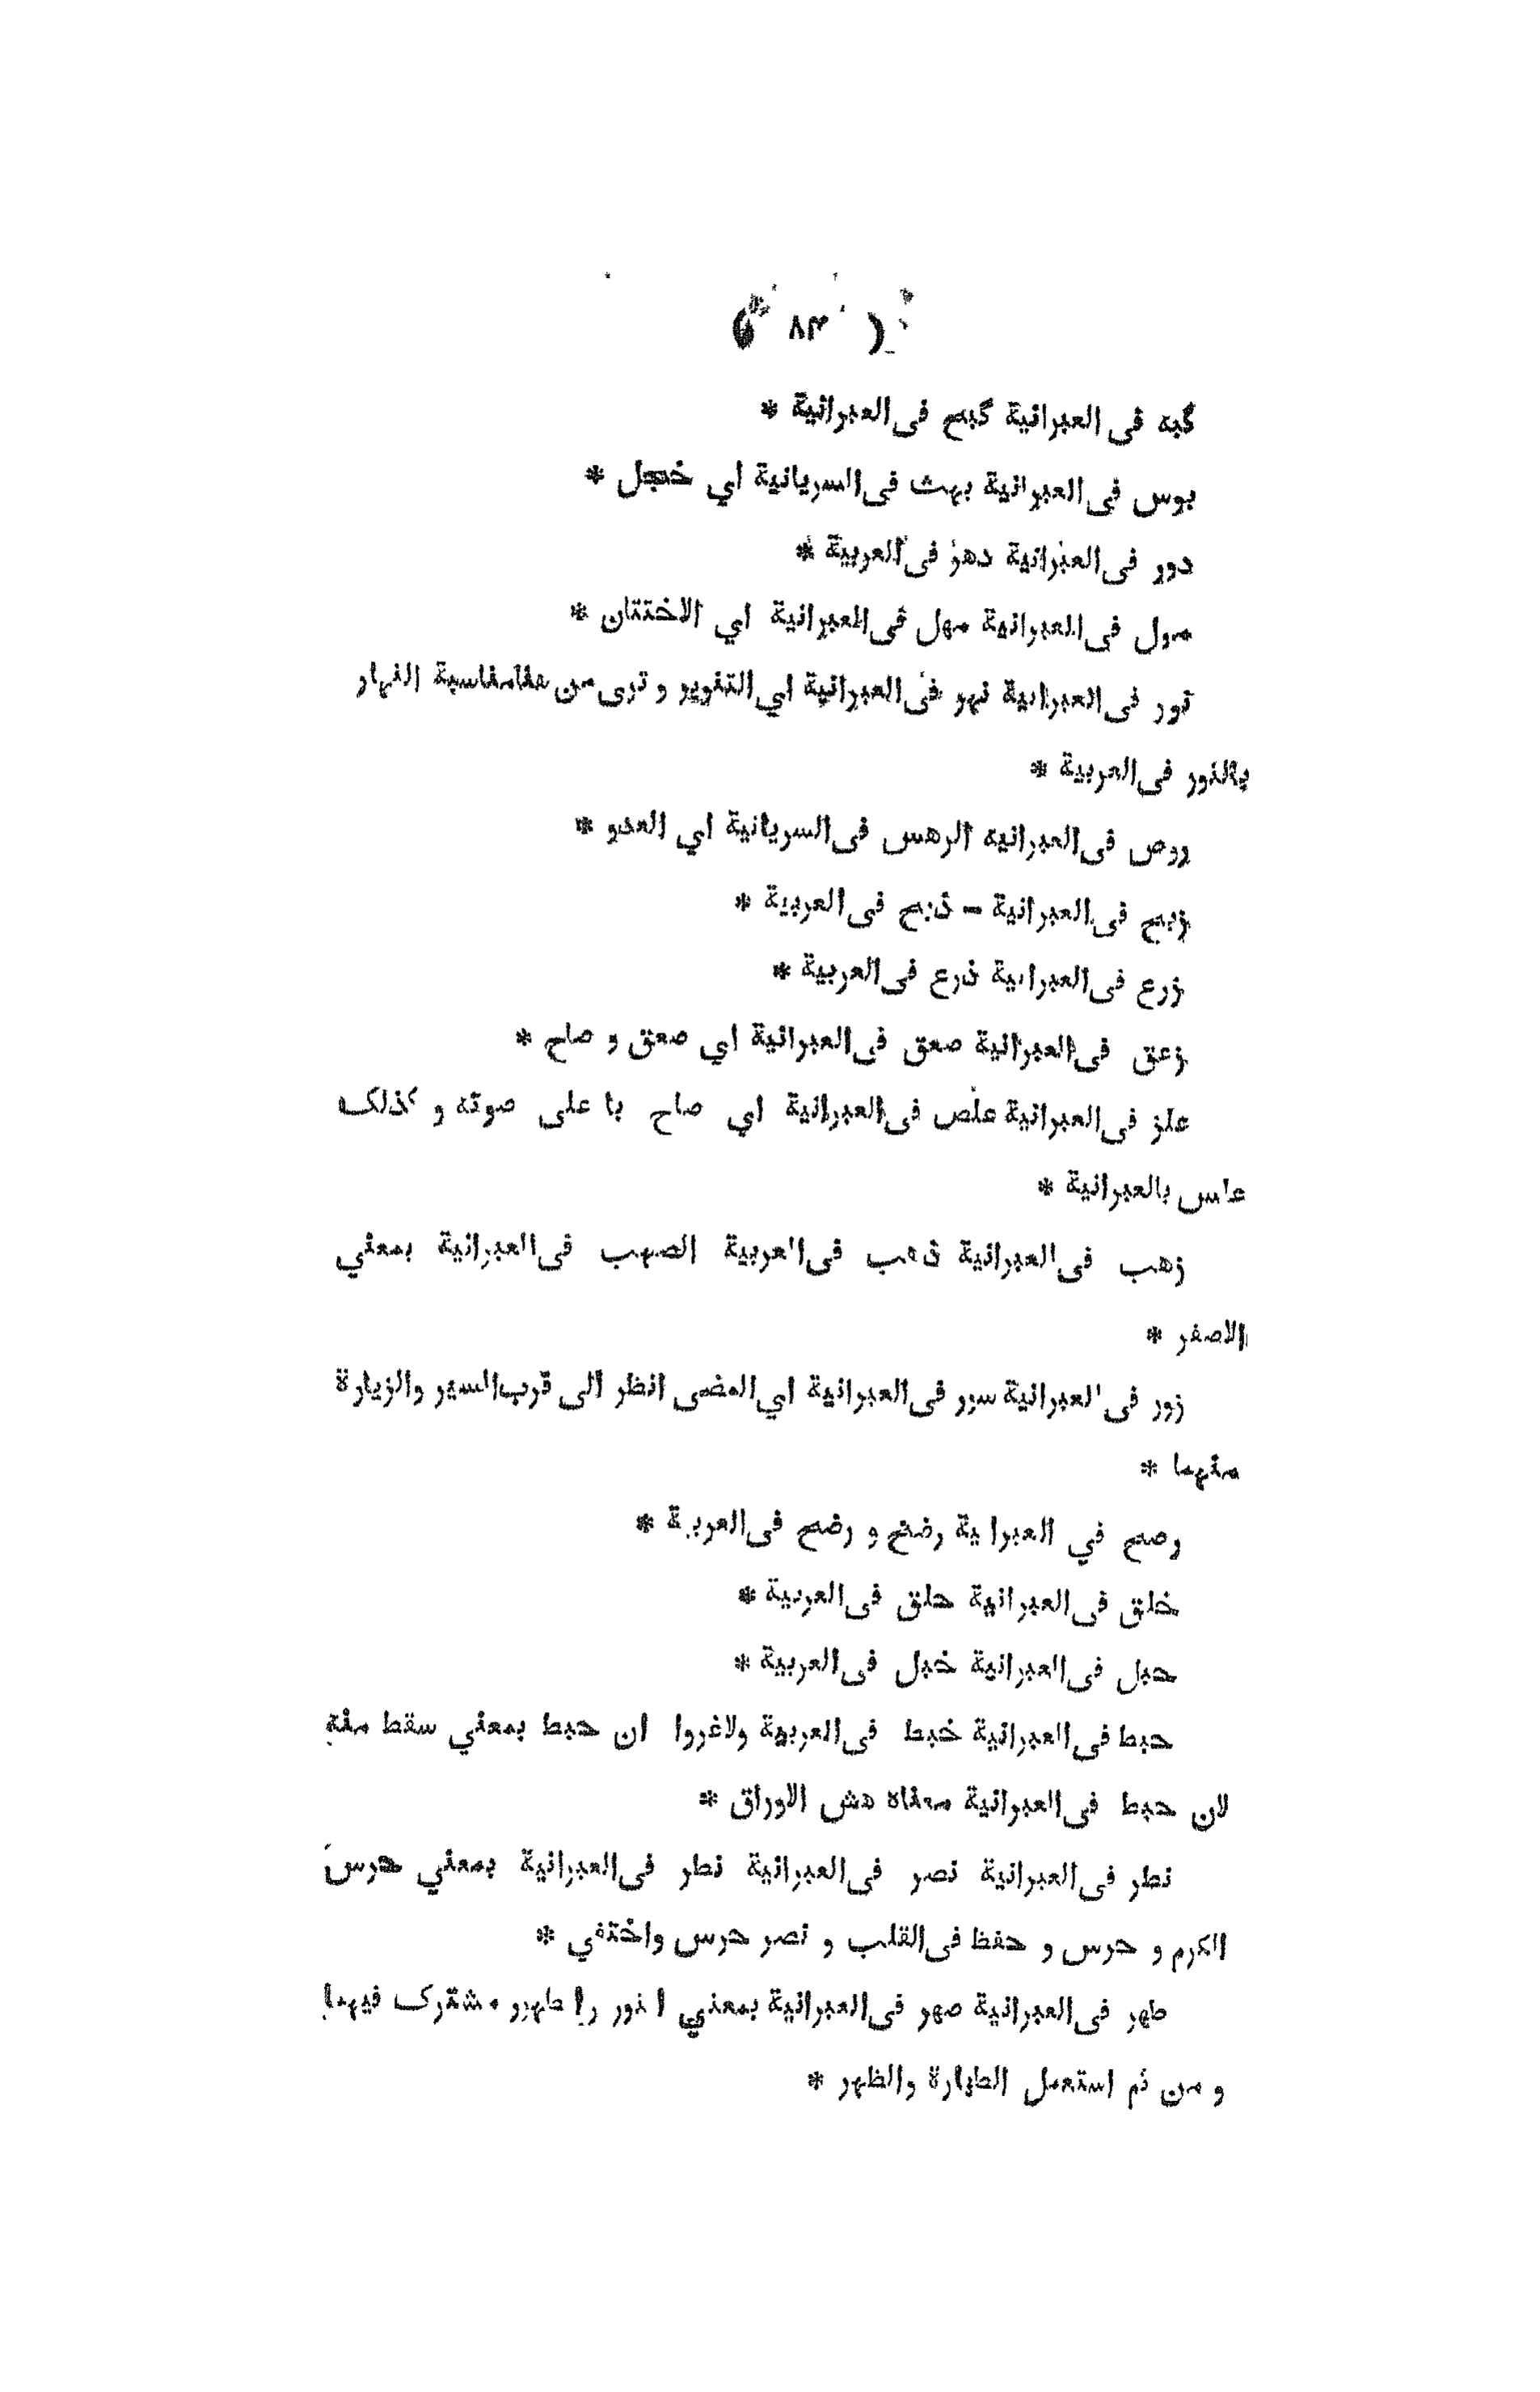 ( ۸۴ )
گبه في العبرانية گبح في العبرانية *
بوس فى العبرانية بهث فى السريانية اي خجل *
دور فى العبرانية دهر فى العربية *
مول فى العبرانية مهل فى العبرانية اي الاختتان *
نور فى العبرانية نهر فى العبرانية اي التنوير و ترى من مناسبة النهار
بالنور فى العربية *
روص فى العبرانية الرهس فى السريانية اي العدو *
زبح فى العبرانية - ذبح فى العربية *
زرع فى العبرانية ذرع فى العربية *
زعق فى العبرانية صعق فى العبرانية اي صعق و صاح *
علز فى العبرانية علص فى العبرانية اي صاح با على صوته و كذلك
علس بالعبرانية *
زهب فى العبرانية ذهب فى العربية الصهب فى العبرانية بمعني
الاصفر *
زور فى العبرانية سور فى العبرانية اي المضى انظر الى قرب السير والزيارة
منهما *
رصح في العبرانية رضخ و رضح فى العربية *
خلق فى العبرانية حلق فى العربية *
حبل فى العبرانية خبل فى العربية *
حبط فى العبرانية خبط فى العربية ولاغروا ان حبط بمعني سقط منه
لان حبط فى العبرانية معناه هش الاوراق *
نطر فى العبرانية نصر فى العبرانية نطر فى العبرانية بمعني حرس
الكرم و حرس و حفظ فى القلب و نصر حرس واختفي *
طهر فى العبرانية صهر فى العبرانية بمعني انور را طهرو مشترك فيهما
و من ثم استعمل الطهارة والظهر *